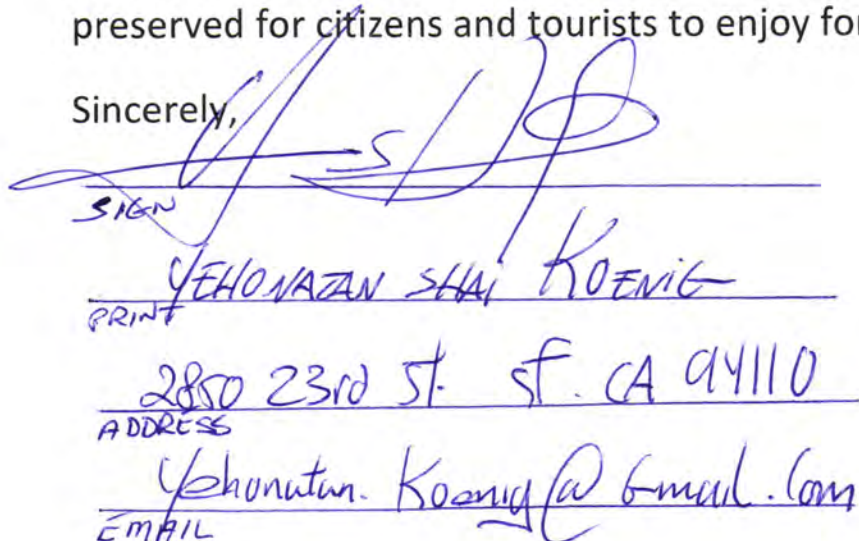 preserved for citizens and tourists to enjoy for
Sincerely,
SIGN
YEHONATAN SHAI KOENIG
PRINT
2850 23rd St. SF. CA 94110
ADDRESS
Yehonatan.Koenig@Gmail.com
EMAIL